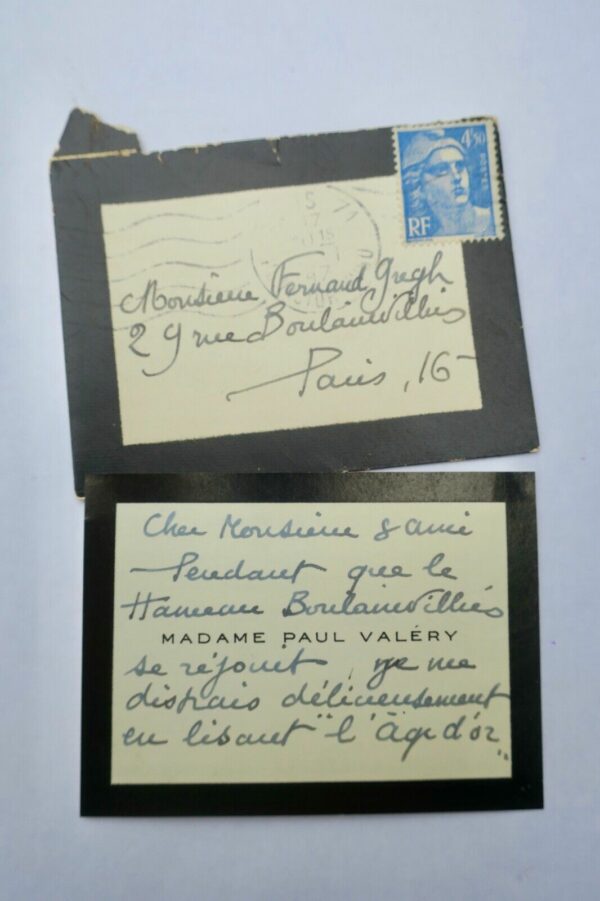 4,50
POSTES
RF
Monsieur Fernand Gregh
29 rue Boulainvilliers
Paris, 16
Cher Monsieur & ami
Pendant que le
Hameau Boulainvilliers
MADAME PAUL VALÉRY
se réjouit, je me
distrais délicieusement
en lisant "l'Âge d'or"